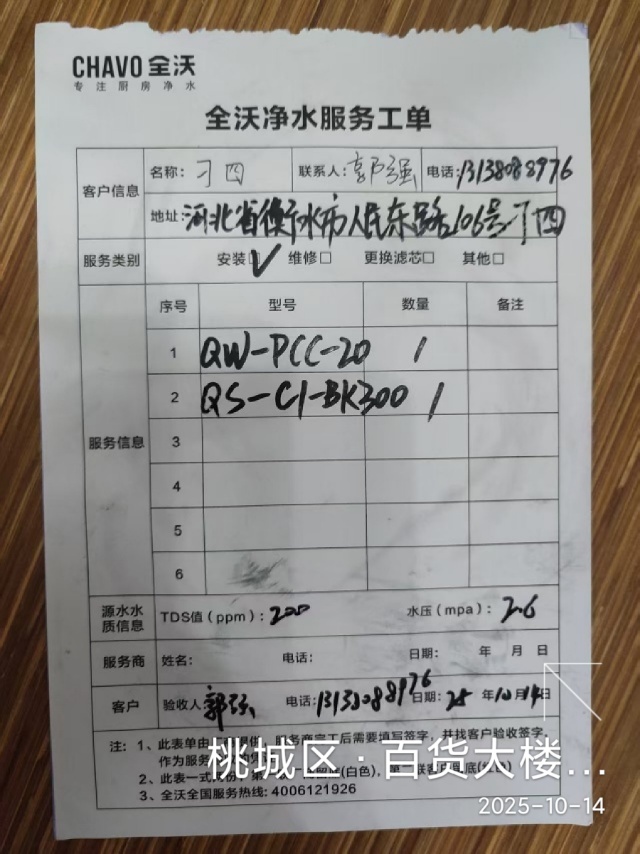 CHAVO 全沃
专注厨房净水
全沃净水服务工单
客户信息 名称: 刁四 联系人: 郭强 电话: 13138088976
地址: 河北省衡水市人民东路106号刁四
服务类别 安装☑ 维修□ 更换滤芯□ 其他□
服务信息 序号 型号 数量 备注
1 QW-PCC-20 1
2 QS-C1-BK300 1
3
4
5
6
源水水质信息 TDS值(ppm): 200 水压(mpa): 2.6
服务商 姓名: 电话: 日期: 年 月 日
客户 验收人 郭强 电话: 13138088976 日期: 25 年 10 月 14 日
注: 1、此表单由 服务商完工后需要填写签字,并找客户验收签字,
作为服务
2、此表一式 (白色), 联客户
3、全沃全国服务热线: 4006121926
桃城区·百货大楼...
2025-10-14